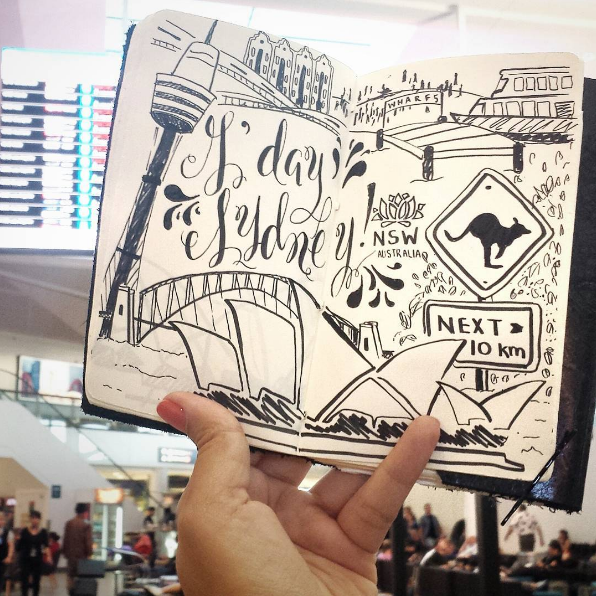 G'day
Sydney!
WHARFS
NSW
AUSTRALIA
NEXT
10 km